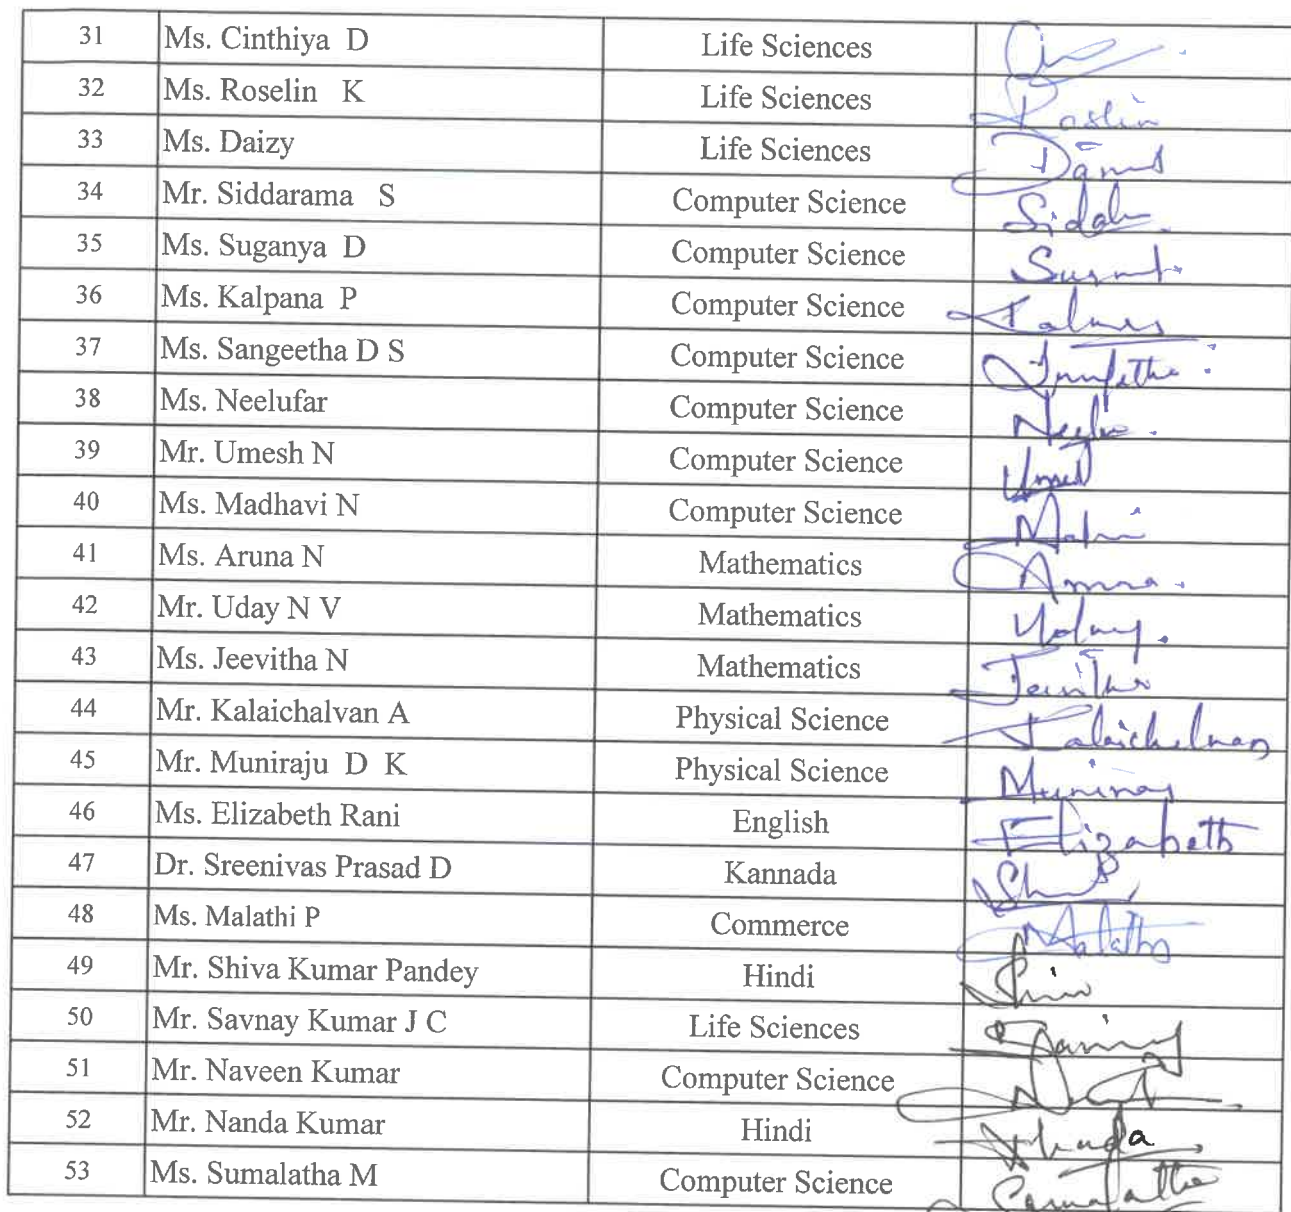 31 Ms. Cinthiya D Life Sciences
32 Ms. Roselin K Life Sciences Roslin
33 Ms. Daizy Life Sciences
34 Mr. Siddarama S Computer Science
35 Ms. Suganya D Computer Science
36 Ms. Kalpana P Computer Science
37 Ms. Sangeetha D S Computer Science
38 Ms. Neelufar Computer Science
39 Mr. Umesh N Computer Science
40 Ms. Madhavi N Computer Science
41 Ms. Aruna N Mathematics
42 Mr. Uday N V Mathematics
43 Ms. Jeevitha N Mathematics
44 Mr. Kalaichalvan A Physical Science
45 Mr. Muniraju D K Physical Science
46 Ms. Elizabeth Rani English Elizabeth
47 Dr. Sreenivas Prasad D Kannada
48 Ms. Malathi P Commerce
49 Mr. Shiva Kumar Pandey Hindi
50 Mr. Savnay Kumar J C Life Sciences
51 Mr. Naveen Kumar Computer Science
52 Mr. Nanda Kumar Hindi
53 Ms. Sumalatha M Computer Science